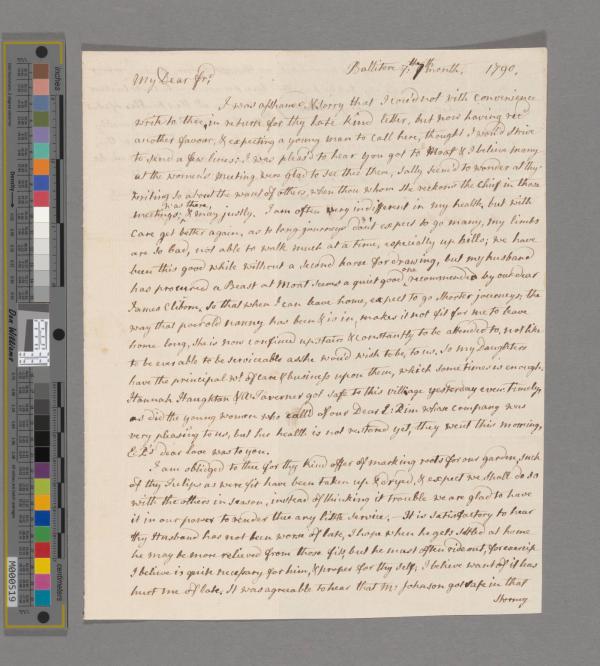 Ballitore 7th month. 1790.
My Dear Frd.
I was asham'd & sorry that I could not with convenience
write to thee, in return for thy late kind letter, but now having recd
another favour, & expecting a young man to call here, thought I would strive
to send a few lines: I was pleas'd to hear you got to Moat & I believe many
at the womens meeting were glad to see thee there, Sally seem'd to wonder at thy
writing so about the want of others, when thou whom she reckons the Chief in those
meetings, was there, & may justly. I am often very indifferent in my health, but with
care get better again, as to long journeys don't expect to go many, my limbs
are so bad, not able to walk much at a time, especially up hills; we have
been this good while without a second horse for drawing, but my husband
has procured a Beast at Moat seems a quiet good one recommended by our dear
James Clibborn. So that when I can leave home, expect to go shorter journeys, the
way that poor old nanny has been & is in, makes it not fit for me to leave
home long, she is now confined up stairs & constantly to be attended to, not like
to be ever able to be serviceable as she would wish to be, to us. So my Daughters
have the principal wt. of care & business upon them, which some times is enough.
Hannah Haughton & Taverner got safe to this village yesterday even: timely,
as did the young women who call'd of our Dear whose company was
very pleasing to us, but her health is not restored yet, they went this morning,
dear love was to you.
I am obliged to thee for thy kind offer of marking roots for our garden, such
of thy Tulips as were fit have been taken up & dryed, & expect we shall do so
with the others in season, instead of thinking it trouble we are glad to have
it in our power to render thee any little service. — It is satisfactory to hear
thy Husband has not been worse of late, I hope when he gets settled at home
he may be more relieved from those fits, but he must often ride out, for exercise
I believe is quite necessary for him, & proper for thy self, I believe want of it has
hurt me of late. It was agreeable to hear that Johnson got safe in that
stormy
Don Williams
inches
centimeters
M000519